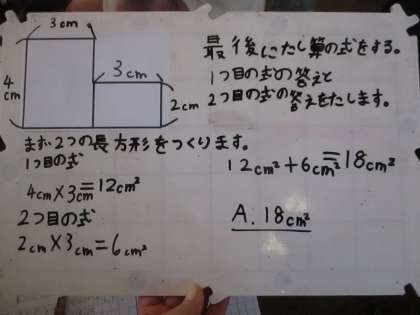 3cm
4cm
3cm
2cm
まず2つの長方形をつくります。
1つ目の式
4cm×3cm=12cm²
2つ目の式
2cm×3cm=6cm²
最後にたし算の式をする。
1つ目の式の答えと
2つ目の式の答えをたします。
12cm²+6cm²=18cm²
A. 18cm²